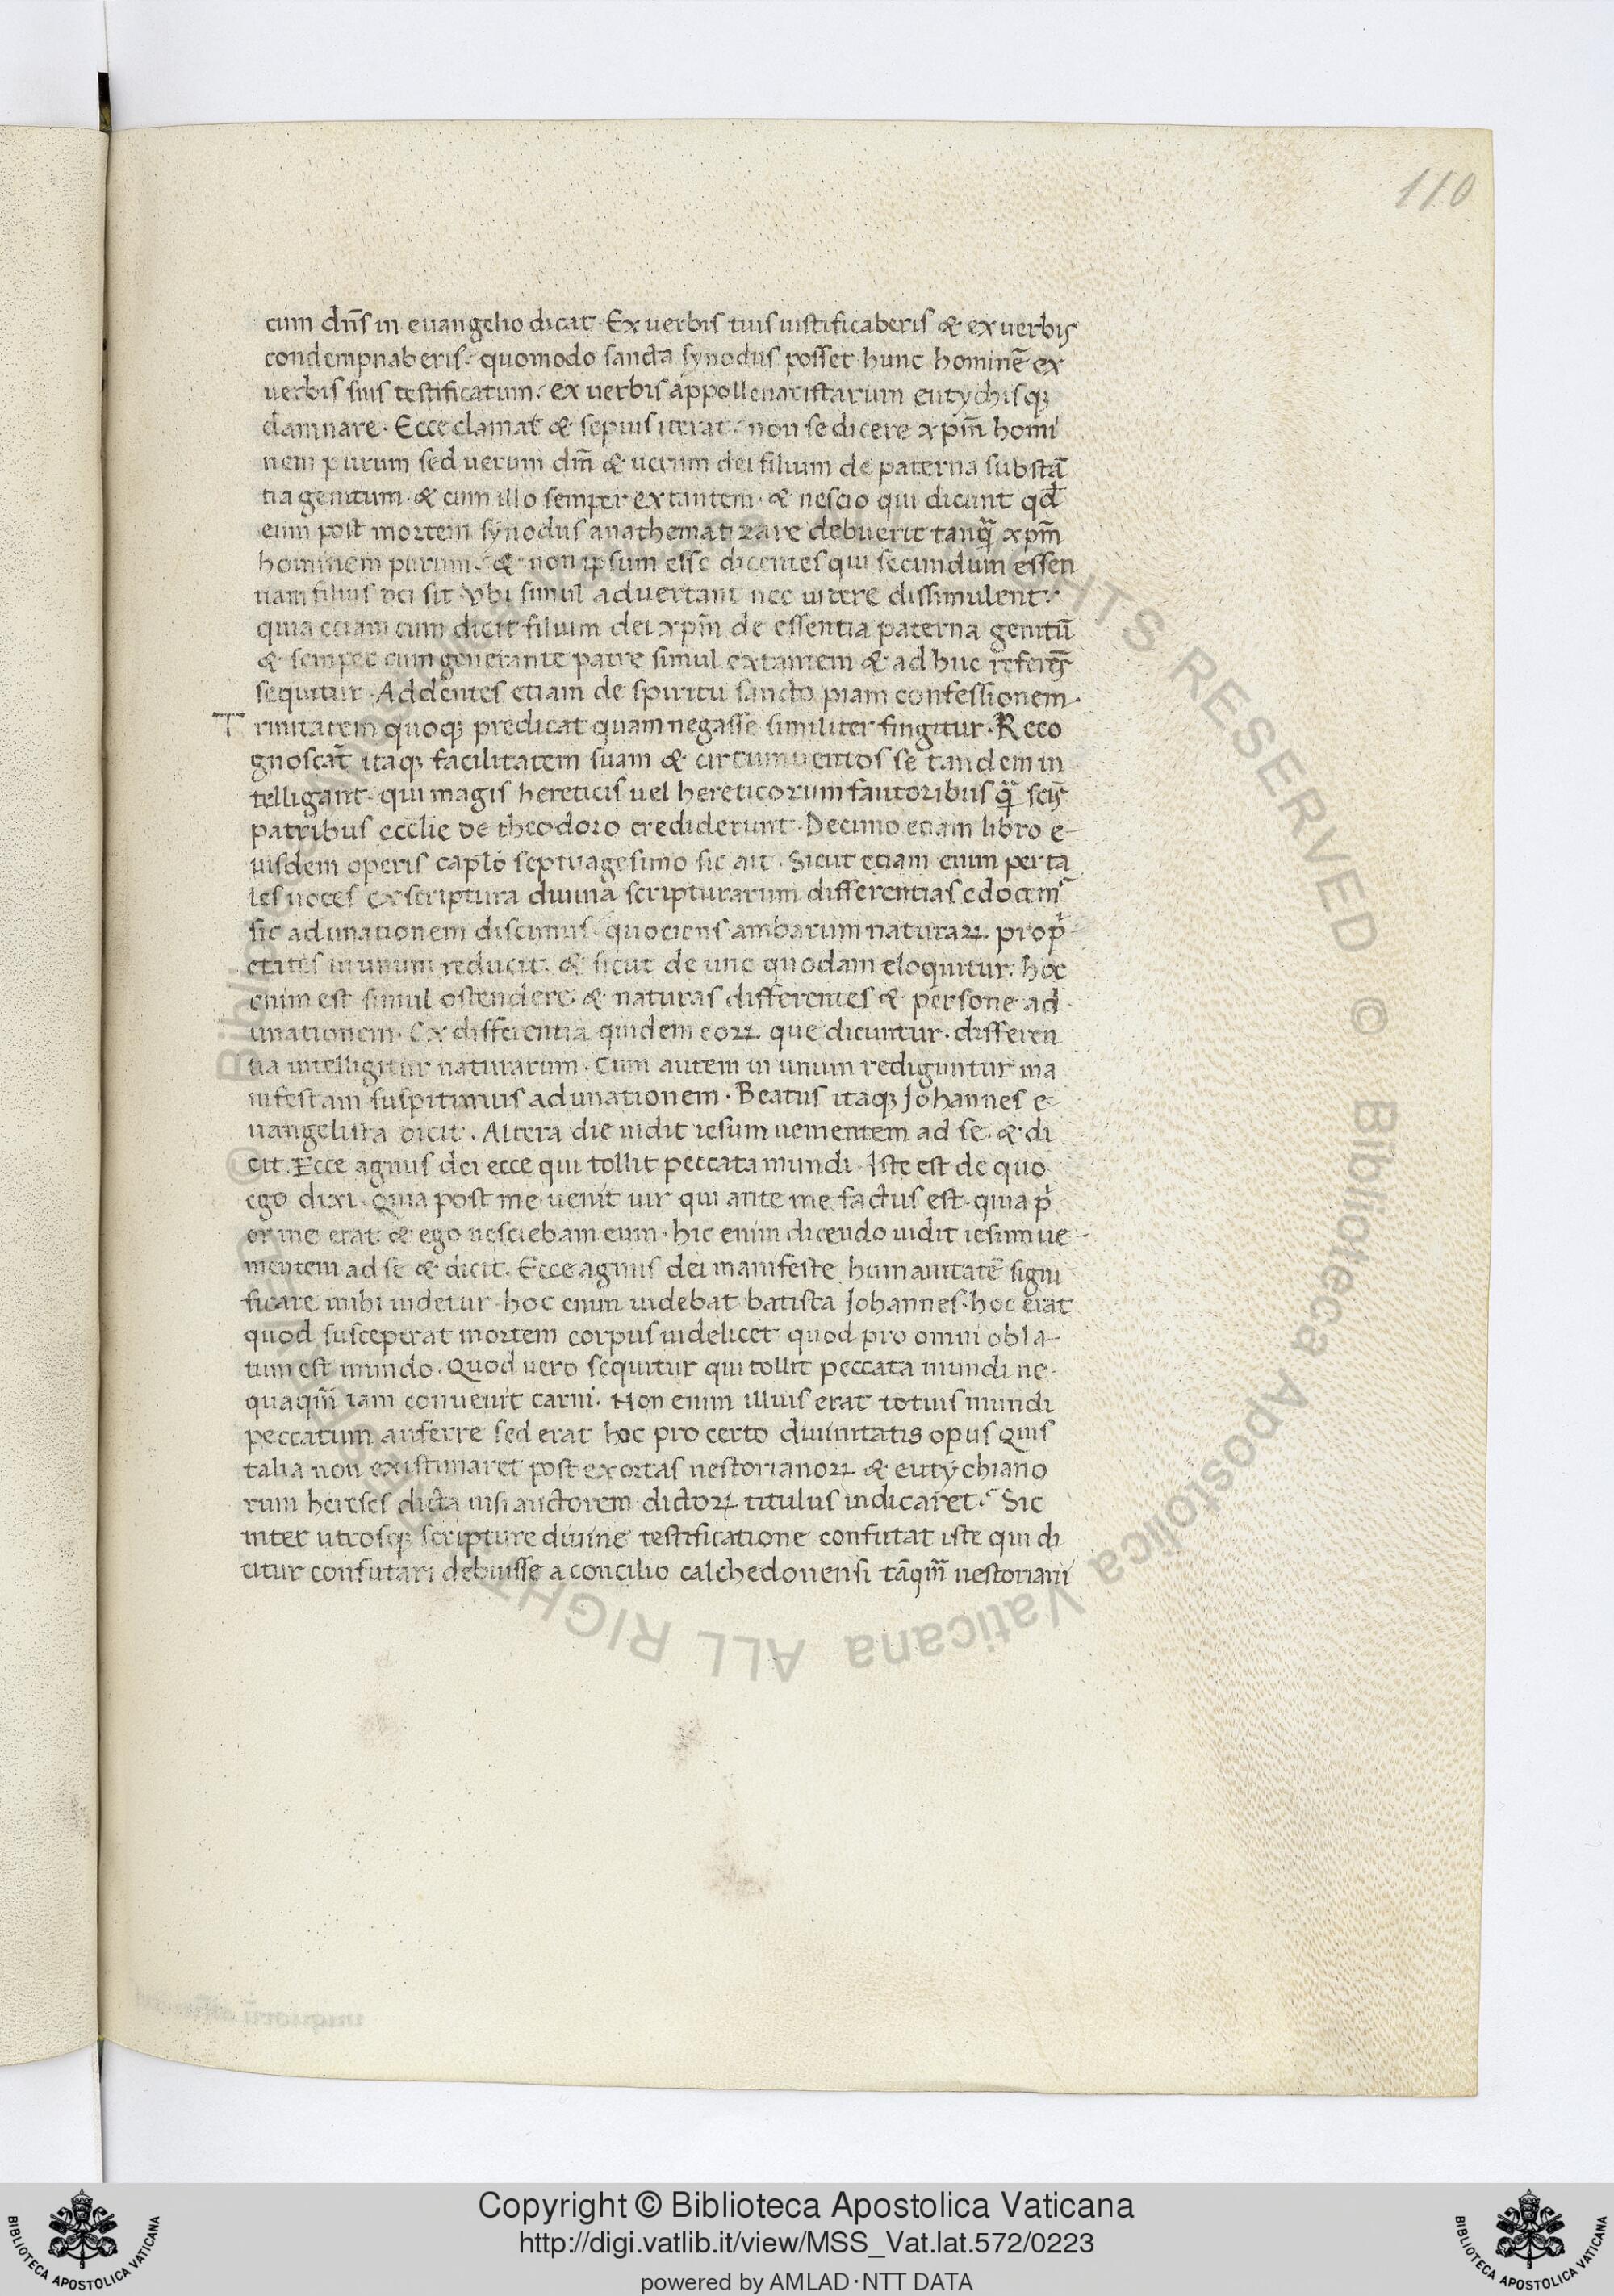 110
cum dn̄s in euangelio dicat · Ex uerbis tuis iustificaberis & ex uerbis
condempnaberis · quomodo sancta synodus posset hunc hominē ex
uerbis suis testificatum · ex uerbis appollenaristarum eutychisq;
damnare · Ecce clamat & sepius iterat · non se dicere xpm̄ homi
nem purum sed uerum dm̄ & uerum dei filium de paterna substā
tia genitum · & cum illo semper extantem · & nescio qui dicunt qd̄
eum post mortem synodus anathematizare debuerit tanq̄ xpm̄
hominem purum · & non ipsum esse dicentes qui secundum essen
tiam filius dei sit · Vbi simul aduertant nec uitere dissimulent ·
quia etiam cum dicit filium dei xpm̄ de essentia paterna genitū
& semper cum generante patre simul extantem & ad huc referēs
sequitur · Addentes etiam de spiritu sancto piam confessionem ·
Trinitatem quoq; predicat quam negasse similiter fingitur · Reco
gnoscāt itaq; facilitatem suam & circumuentos se tandem in
telligant · qui magis hereticis uel hereticorum fautoribus q̄ scīs
patribus ecclie de theodoro crediderunt · Decimo etiam libro e-
iusdem operis captō septuagesimo sic ait · Sicut etiam eum per ta
les uoces ex scriptura diuina scripturarum differentias edocem̄
sic adunationem discimus · quociens ambarum naturaꝝ prop̄
etates in unum reducit · & sicut de uno quodam eloquitur · hoc
enim est simul ostendere · & naturas differentes & persone ad
unationem · Ex differentia quidem eoꝝ que dicuntur · differen
tia intelligitur naturarum · Cum autem in unum rediguntur ma
nifestam suspitimus adunationem · Beatus itaq; Johannes e-
uangelista dicit · Altera die uidit iesum uenientem ad se · & di
cit · Ecce agnus dei ecce qui tollit peccata mundi · Iste est de quo
ego dixi · Quia post me uenit uir qui ante me factus est · quia p̄
or me erat · & ego nesciebam eum · hic enim dicendo uidit iesum ue-
nientem ad se & dicit · Ecce agnus dei manifeste humanitatē signi
ficare mihi uidetur · hoc enim uidebat batista Johannes · hoc erat
quod susceperat mortem corpus uidelicet quod pro omni obla-
tum est mundo · Quod uero sequitur qui tollit peccata mundi ne-
quaqm̄ iam conuenit carni · Non enim illius erat totius mundi
peccatum auferre sed erat hoc pro certo diuinitatis opus Quis
talia non existimaret post exortas nestorianoꝝ & eutychiano
rum hereses dicta nisi auctorem dictoꝝ titulus indicaret · Sic
inter utrosq; scripture diuine testificatione confutat iste qui di
citur confutari debuisse a concilio calchedonensi tāqm̄ nestoriani
Copyright © Biblioteca Apostolica Vaticana
http://digi.vatlib.it/view/MSS_Vat.lat.572/0223
powered by AMLAD·NTT DATA